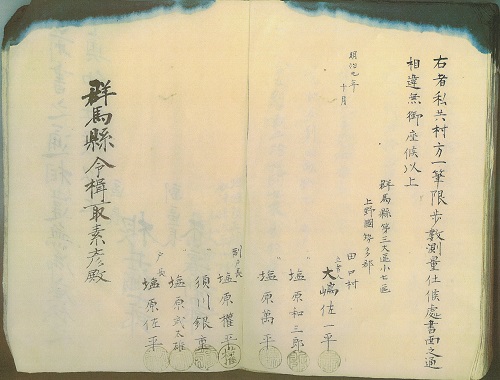 右者私共村方一筆限歩数測量仕候處書面之通
相違無御座候以上
明治九年
十月
群馬縣第三大區小七區
上野國勢多郡
田口村
立会人
大嶋佐一平
〃
塩原和三郎
〃
塩原萬平
副戸長
塩原権平
〃
須川銀重
〃
塩原武太雄
戸長
塩原佐平
群馬縣令楫取素彦殿